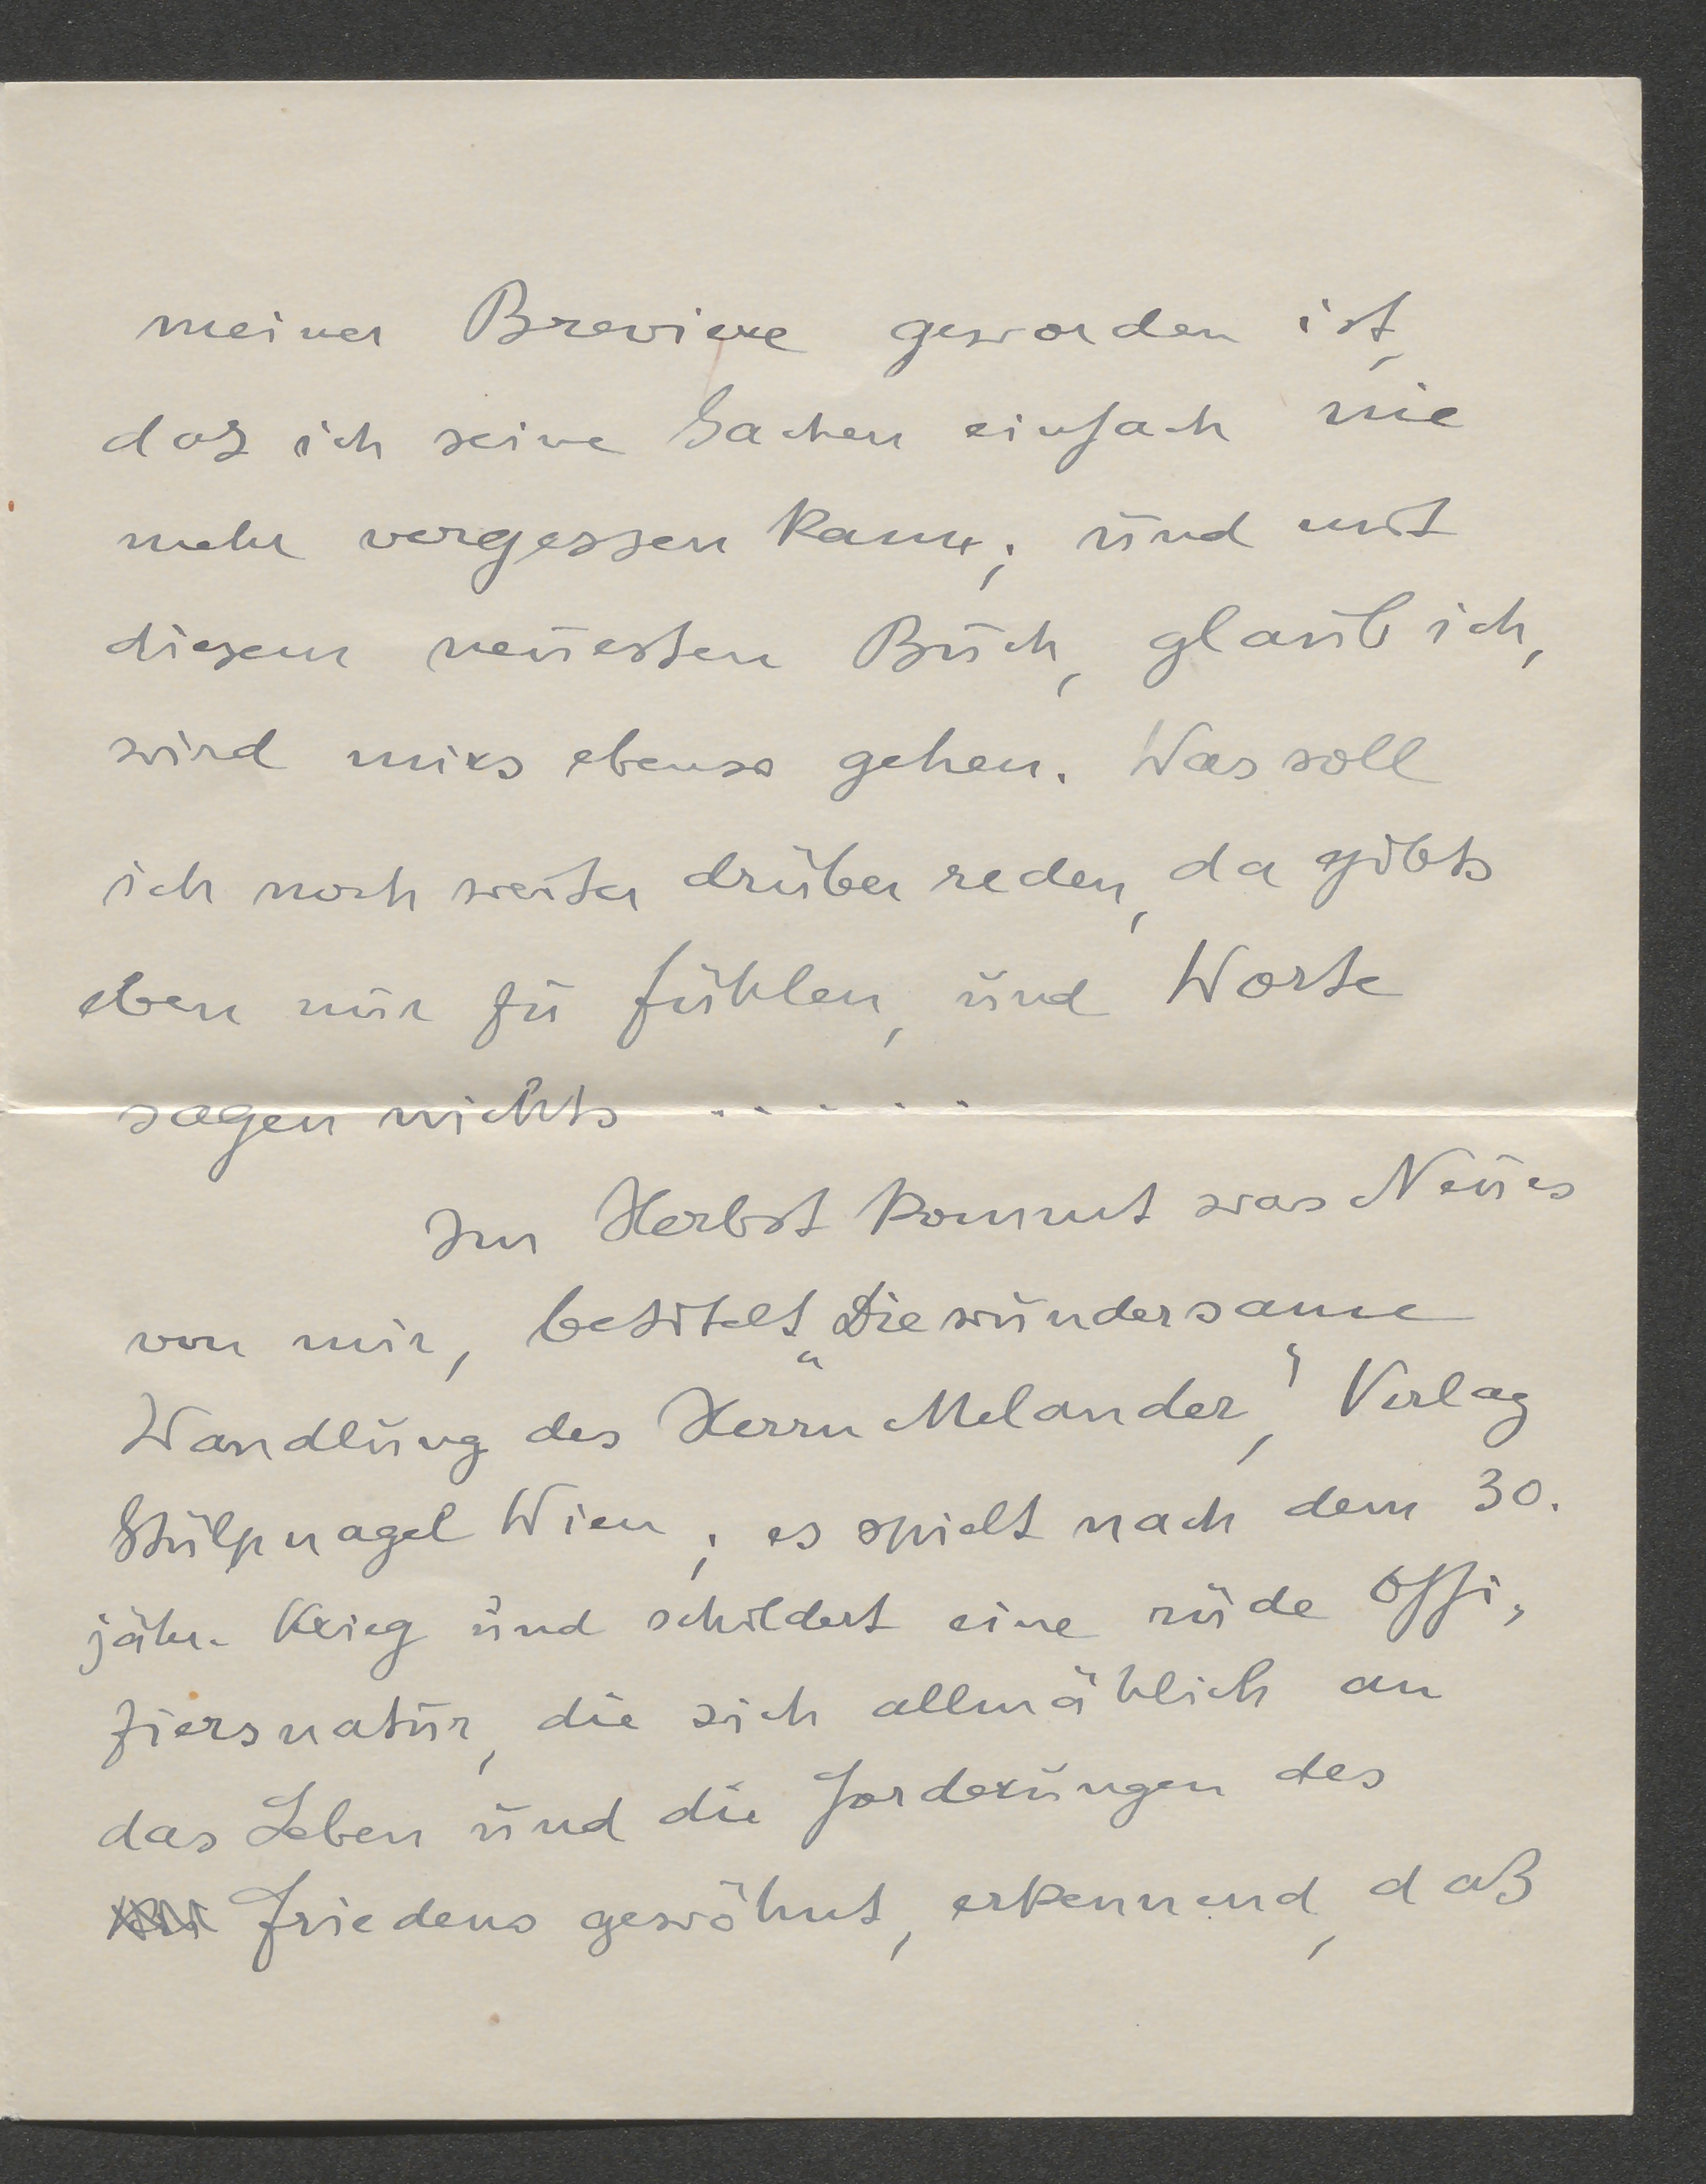 meiner Breviere geworden ist,
daß ich seine Sachen einfach nie
mehr vergessen kann; und mit
diesem neuesten Buch, glaub ich,
wird mirs ebenso gehen. Was soll
ich noch weiter drüber reden, da gibts
eben nur zu fühlen, und Worte
sagen nichts . . . . .
Im Herbst kommt was Neues
von mir, betitelt „Die wundersame
Wandlung des Herrn Melander“, Verlag
Stülpnagel Wien; es spielt nach dem 30.
jähr. Krieg und schildert eine rüde Offi-
ziersnatur, die sich allmählich an
das Leben und die Forderungen des
Friedens gewöhnt, erkennend, daß